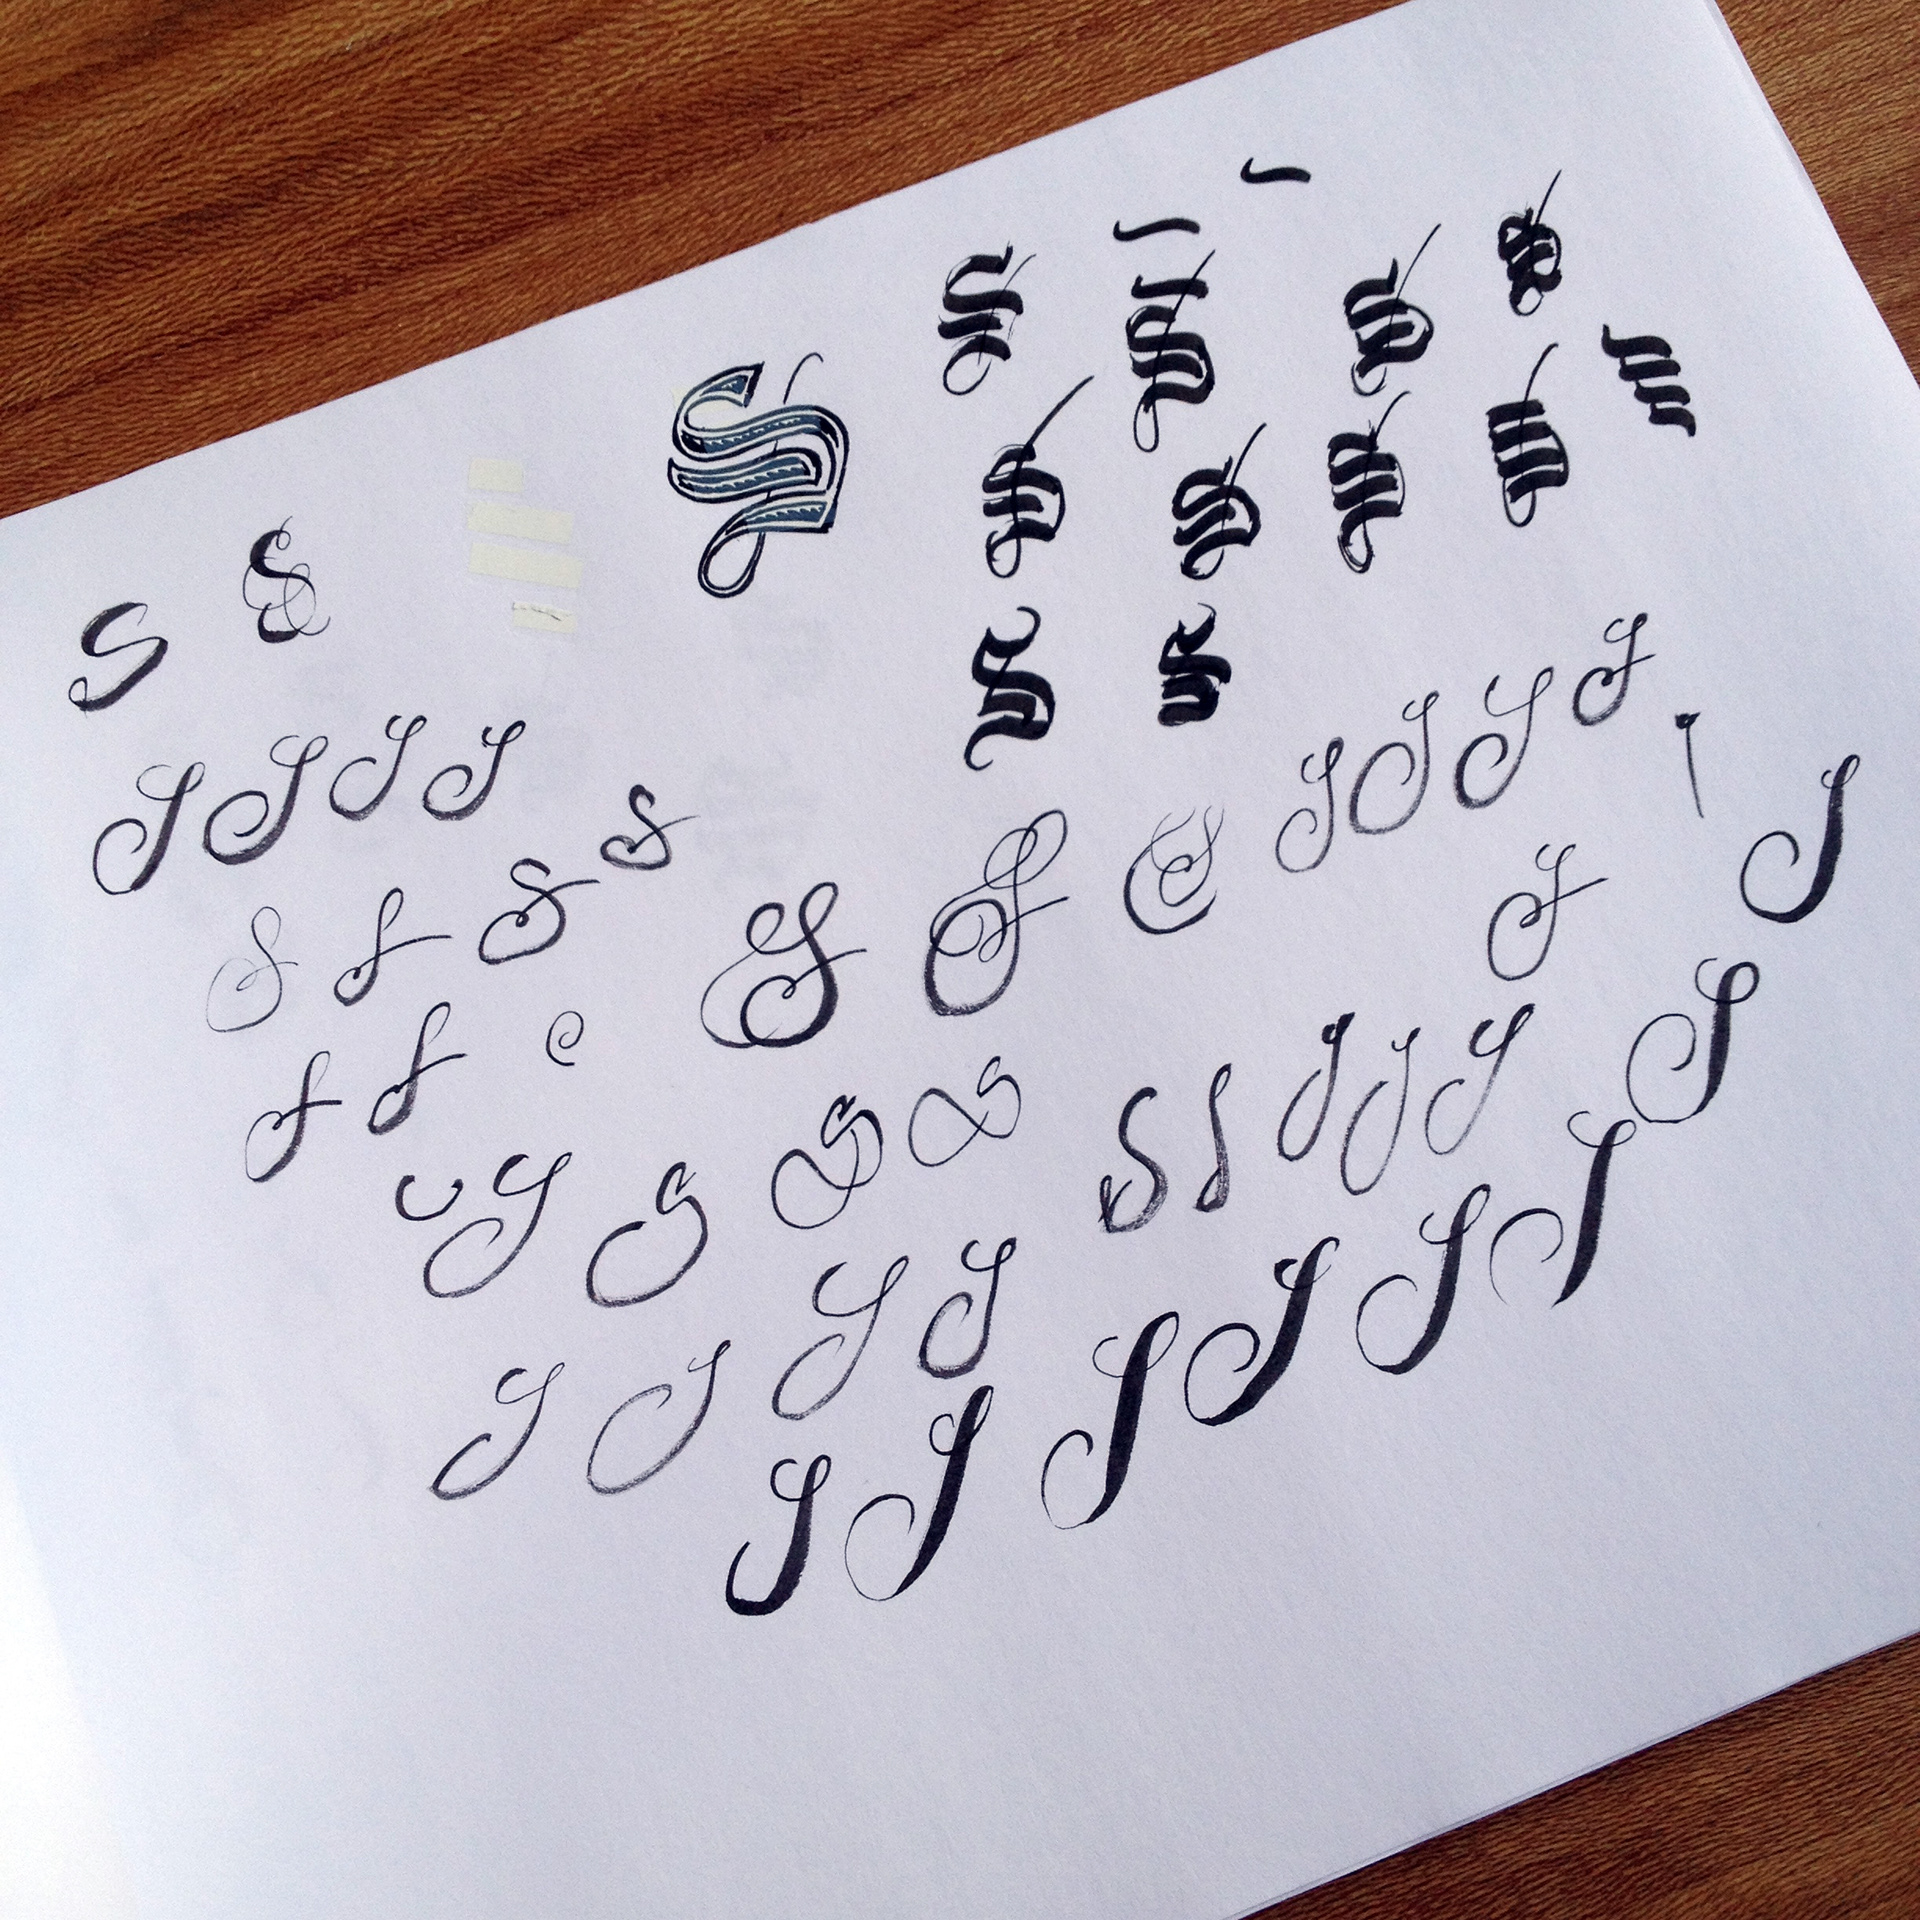 S S S S S S S S
S S S S S S
S S S S
S S S S S S S S
S S S S S S S S S
S S S S S S
S S S S S S S
S S S S S
S S S S S S